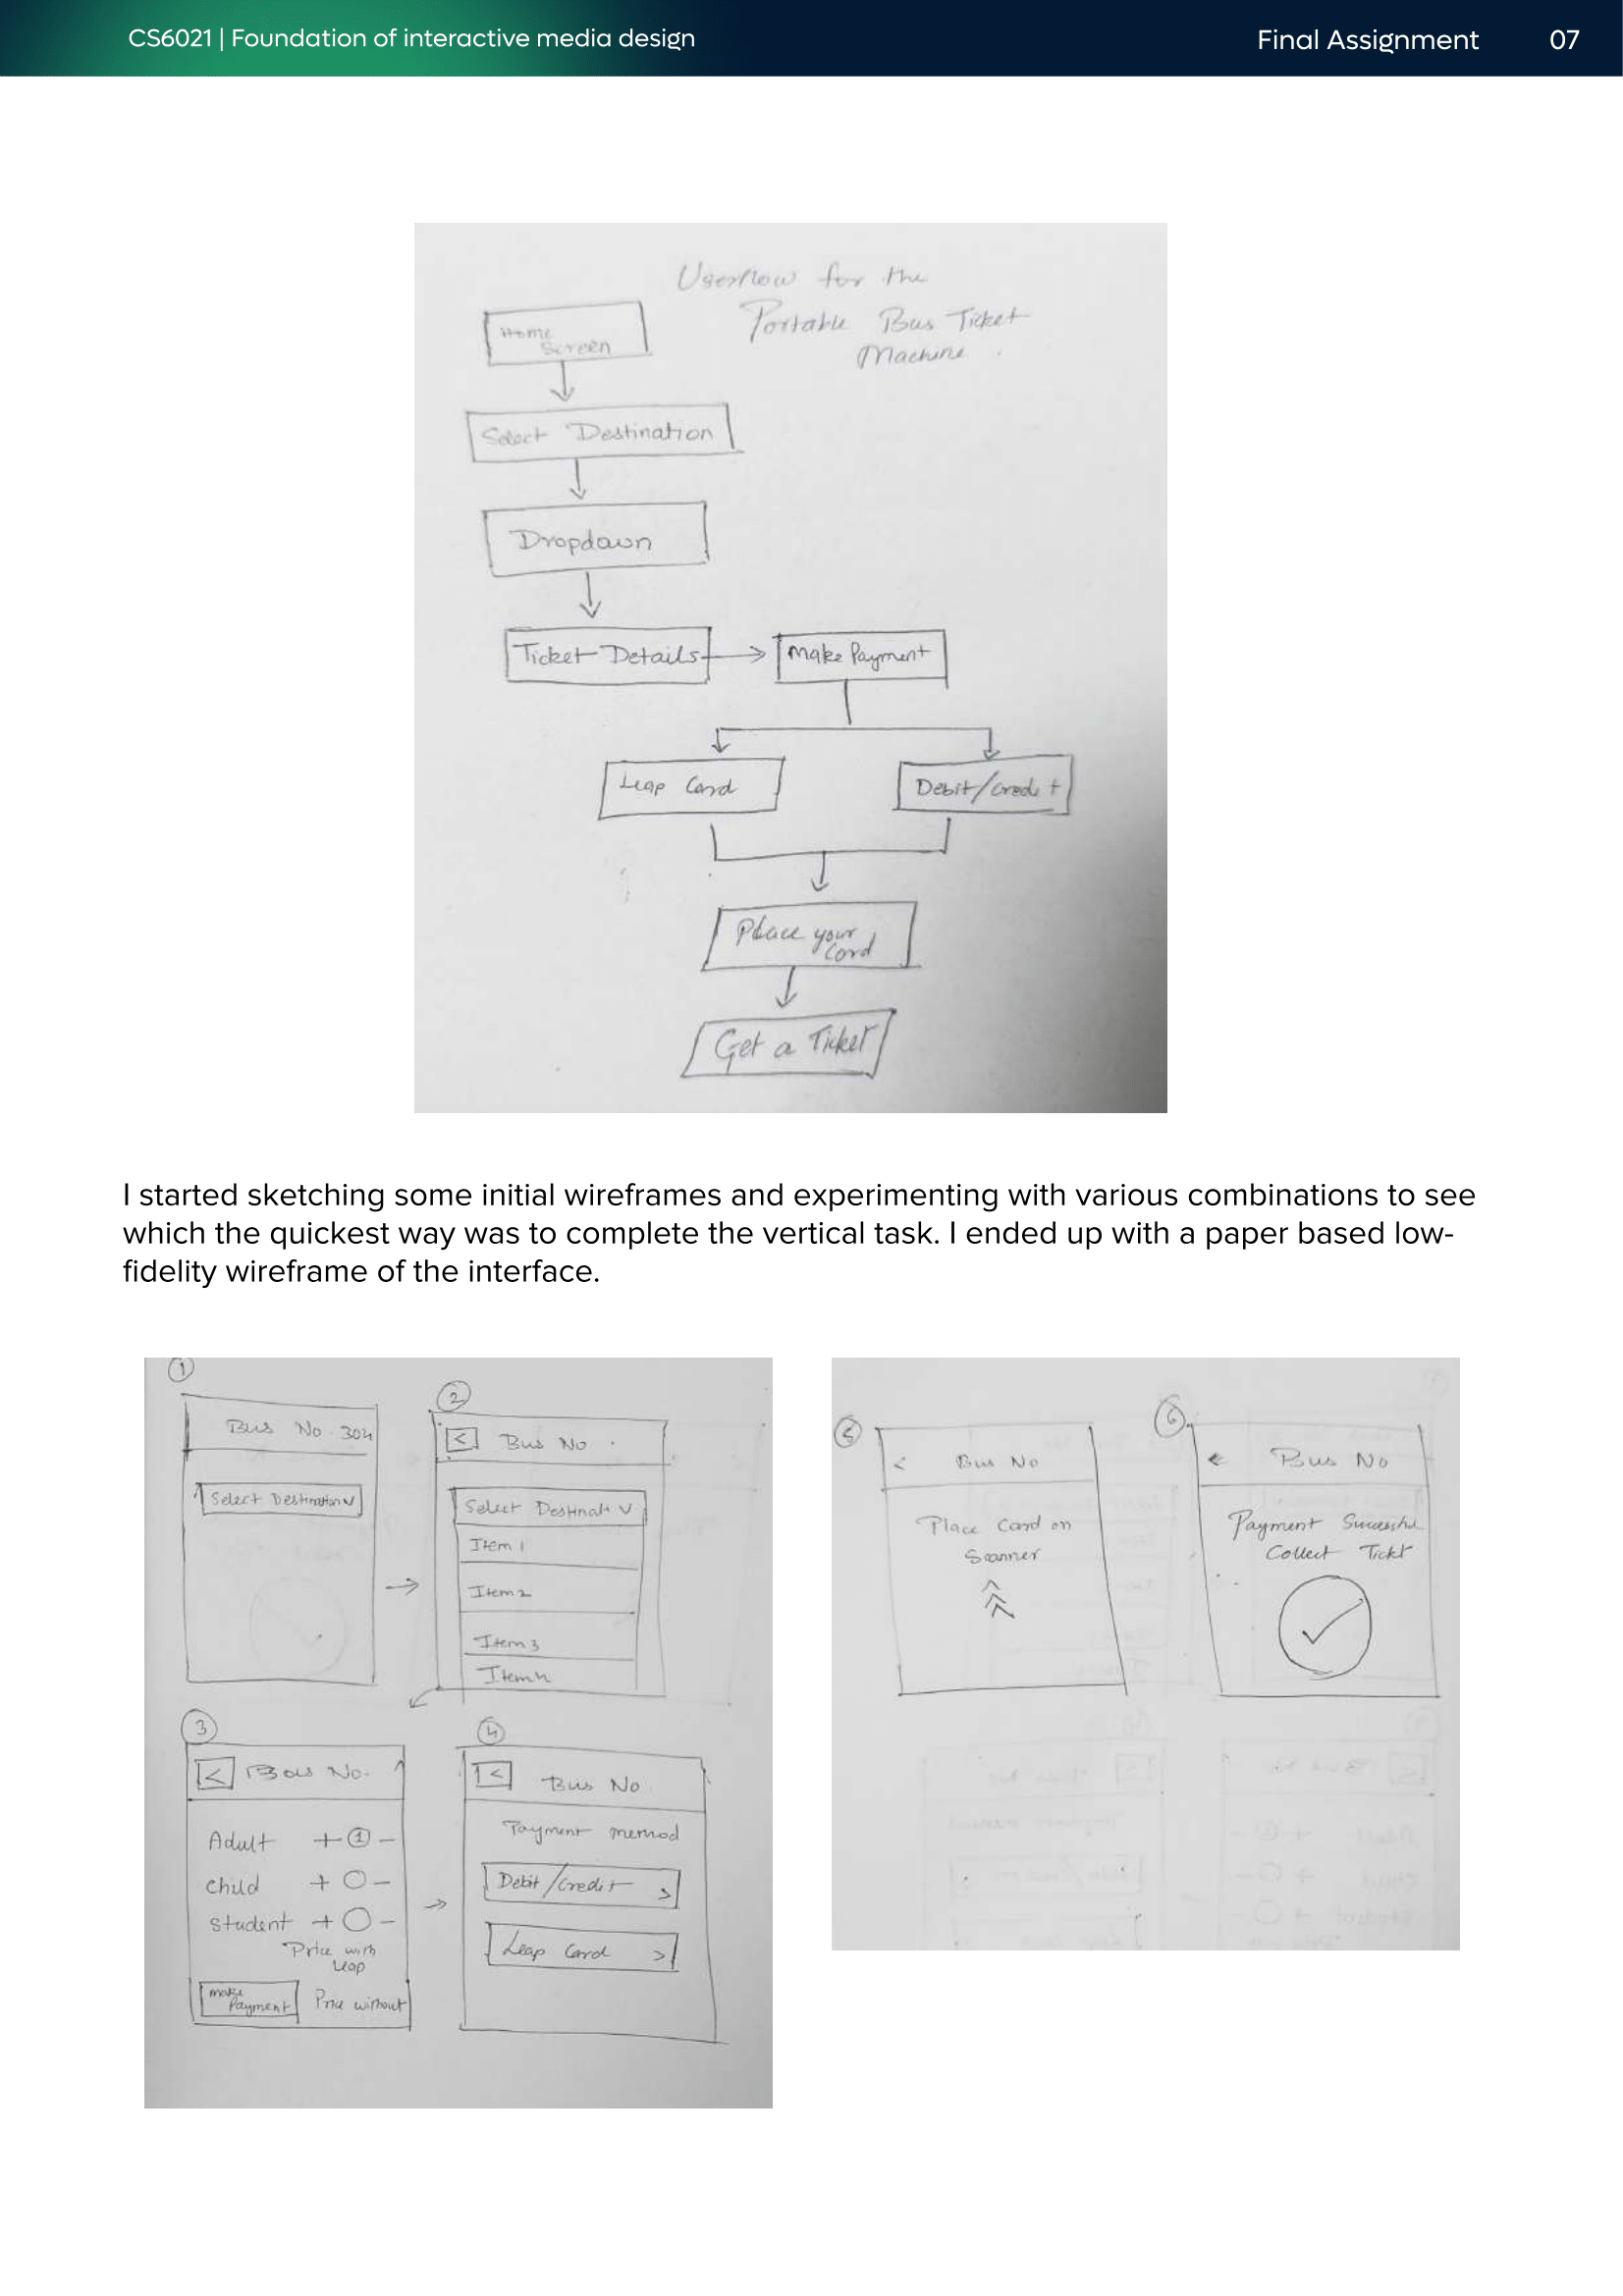 CS6021 | Foundation of interactive media design
Final Assignment
07
Userflow for the
Portable Bus Ticket
Machine.
Home
Screen
Select Destination
Dropdown
Ticket Details
Make Payment
Leap Card
Debit/Credit
Place your
Card
Get a Ticket
I started sketching some initial wireframes and experimenting with various combinations to see
which the quickest way was to complete the vertical task. I ended up with a paper based low-
fidelity wireframe of the interface.
1
Bus No 304
Select Destination
2
< Bus No
Select Destinati
Item 1
Item 2
Item 3
Item 4
3
< Bus No.
Adult + 1 -
Child + -
Student + -
Price with
Leap
Make
Payment
Price without
4
< Bus No
Payment method
Debit/Credit >
Leap Card >
5
< Bus No
Place Card on
Scanner
6
Bus No
Payment Successful
Collect Tickt